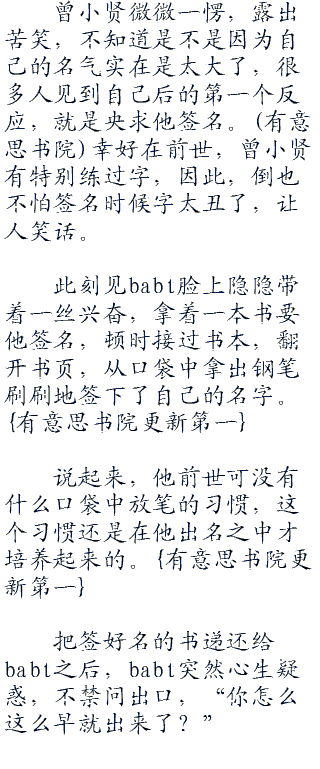 曾小贤微微一愣，露出
苦笑，不知道是不是因为自
己的名气实在是太大了，很
多人见到自己后的第一个反
应，就是央求他签名。(有意
思书院)幸好在前世，曾小贤
有特别练过字，因此，倒也
不怕签名时候字太丑了，让
人笑话。
此刻见babt脸上隐隐带
着一丝兴奋，拿着一本书要
他签名，顿时接过书本，翻
开书页，从口袋中拿出钢笔
刷刷地签下了自己的名字。
{有意思书院更新第一}
说起来，他前世可没有
什么口袋中放笔的习惯，这
个习惯还是在他出名之中才
培养起来的。{有意思书院更
新第一}
把签好名的书递还给
babt之后，babt突然心生疑
惑，不禁问出口，“你怎么
这么早就出来了？”